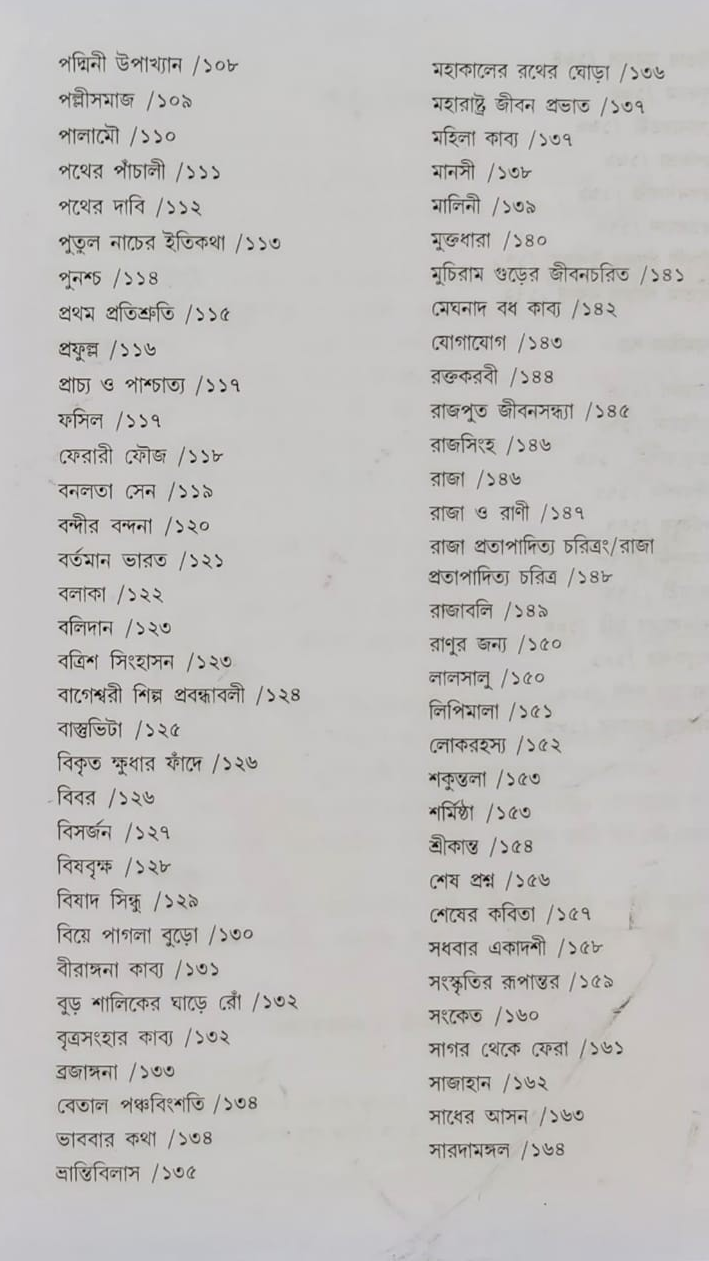 পদ্মিনী উপাখ্যান /১০৮
পল্লীসমাজ /১০৯
পালামৌ /১১০
পথের পাঁচালী /১১১
পথের দাবি /১১২
পুতুল নাচের ইতিকথা /১১৩
পুনশ্চ /১১৪
প্রথম প্রতিশ্রুতি /১১৫
প্রফুল্ল /১১৬
প্রাচ্য ও পাশ্চাত্য /১১৭
ফসিল /১১৭
ফেরারী ফৌজ /১১৮
বনলতা সেন /১১৯
বন্দীর বন্দনা /১২০
বর্তমান ভারত /১২১
বলাকা /১২২
বলিদান /১২৩
বত্রিশ সিংহাসন /১২৩
বাগেশ্বরী শিল্প প্রবন্ধাবলী /১২৪
বাস্তুভিটা /১২৫
বিকৃত ক্ষুধার ফাঁদে /১২৬
বিবর /১২৬
বিসর্জন /১২৭
বিষবৃক্ষ /১২৮
বিষাদ সিন্ধু /১২৯
বিয়ে পাগলা বুড়ো /১৩০
বীরাঙ্গনা কাব্য /১৩১
বুড় শালিকের ঘাড়ে রোঁ /১৩২
বৃত্রসংহার কাব্য /১৩২
ব্রজাঙ্গনা /১৩৩
বেতাল পঞ্চবিংশতি /১৩৪
ভাববার কথা /১৩৪
ভ্রান্তিবিলাস /১৩৫
মহাকালের রথের ঘোড়া /১৩৬
মহারাষ্ট্র জীবন প্রভাত /১৩৭
মহিলা কাব্য /১৩৭
মানসী /১৩৮
মালিনী /১৩৯
মুক্তধারা /১৪০
মুচিরাম গুড়ের জীবনচরিত /১৪১
মেঘনাদ বধ কাব্য /১৪২
যোগাযোগ /১৪৩
রক্তকরবী /১৪৪
রাজপুত জীবনসন্ধ্যা /১৪৫
রাজসিংহ /১৪৬
রাজা /১৪৬
রাজা ও রাণী /১৪৭
রাজা প্রতাপাদিত্য চরিত্রং/রাজা
প্রতাপাদিত্য চরিত্র /১৪৮
রাজাবলি /১৪৯
রাণুর জন্য /১৫০
লালসালু /১৫০
লিপিমালা /১৫১
লোকরহস্য /১৫২
শকুন্তলা /১৫৩
শর্মিষ্ঠা /১৫৩
শ্রীকান্ত /১৫৪
শেষ প্রশ্ন /১৫৬
শেষের কবিতা /১৫৭
সধবার একাদশী /১৫৮
সংস্কৃতির রূপান্তর /১৫৯
সংকেত /১৬০
সাগর থেকে ফেরা /১৬১
সাজাহান /১৬২
সাধের আসন /১৬৩
সারদামঙ্গল /১৬৪